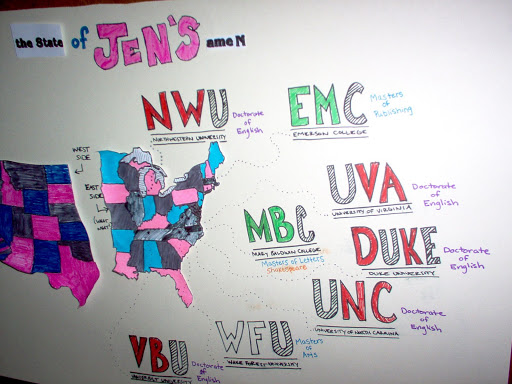 the State of JEN'S ame N
NWU
NORTHWESTERN UNIVERSITY
Doctorate
of English
EMC
EMERSON COLLEGE
Masters
of
Publishing
WEST
SIDE
EAST
SIDE
UVA
UNIVERSITY OF VIRGINIA
Doctorate
of
English
MBC
MARY BALDWIN COLLEGE
Masters of Letters
Shakespeare
DUKE
DUKE UNIVERSITY
Doctorate
of English
UNC
UNIVERSITY OF NORTH CAROLINA
Doctorate
of
English
WFU
WAKE FOREST UNIVERSITY
Masters
of
Arts
VBU
UNIVERSITY
Doctorate
of
English